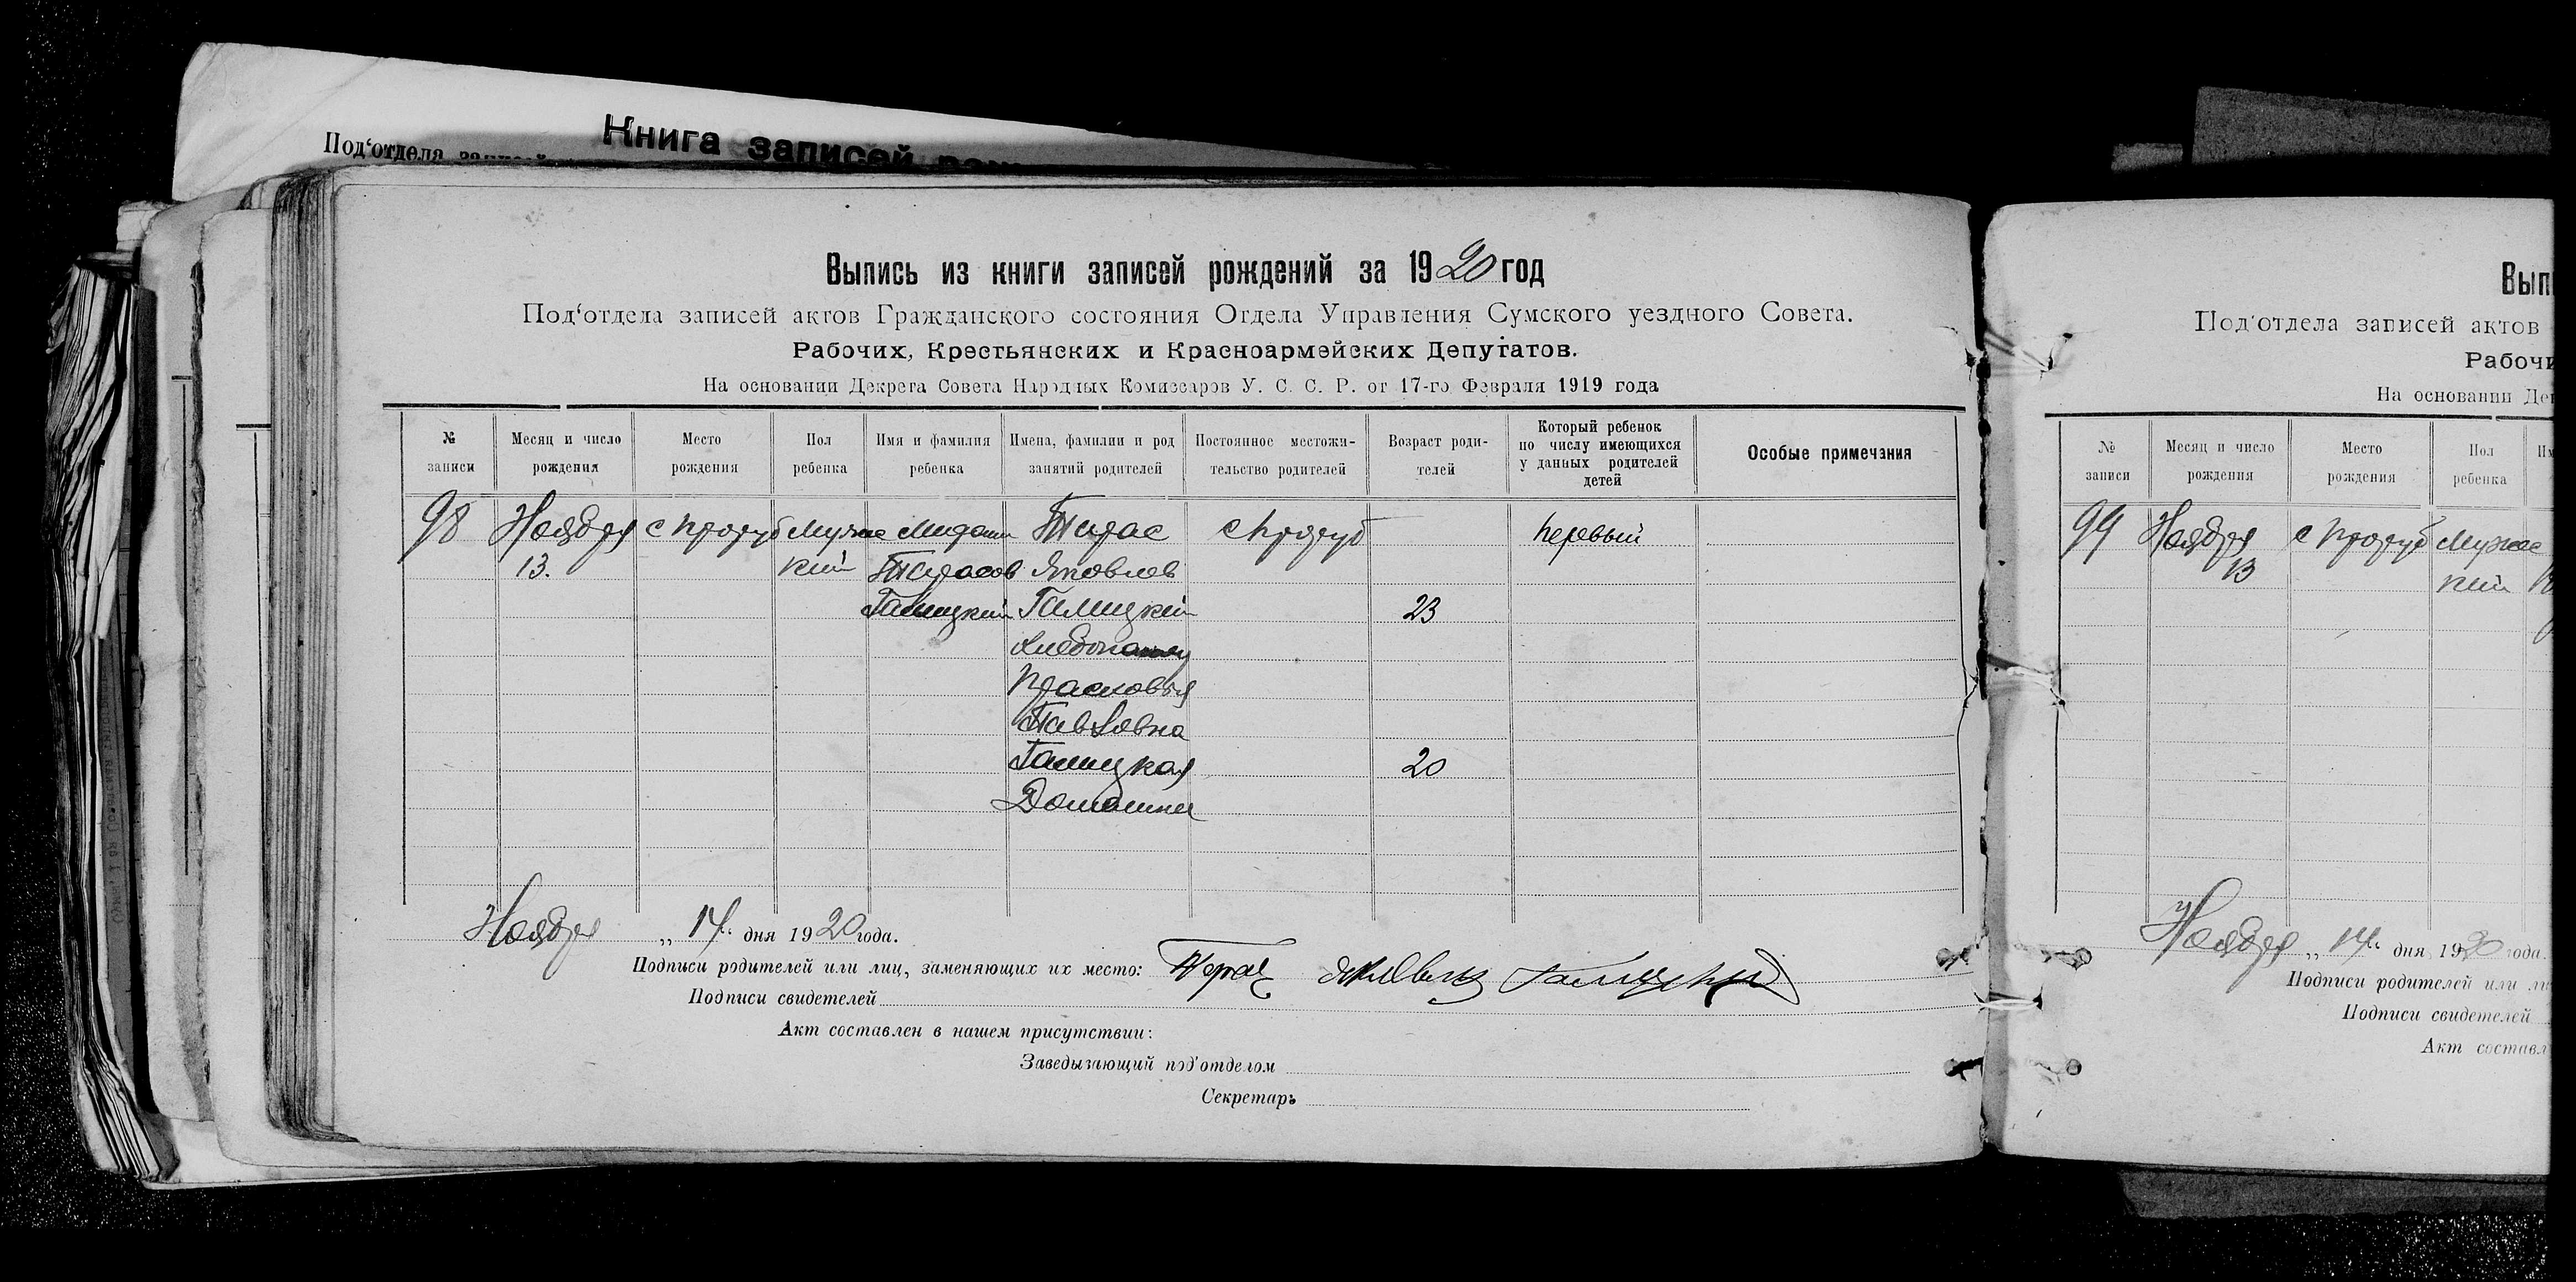 Под‘отдела записей
Книга записей рож
Выпись из книги записей рождений за 1920 год
Под‘отдела записей актов Гражданского состояния Отдела Управления Сумского уездного Совета.
Рабочих, Крестьянских и Красноармейских Депутатов.
На основании Декрета Совета Народных Комиссаров У. С. С. Р. от 17-го Февраля 1919 года
№ записи
Месяц и число рождения
Место рождения
Пол ребенка
Имя и фамилия ребенка
Имена, фамилии и род занятий родителей
Постоянное местожительство родителей
Возраст родителей
Который ребенок по числу имеющихся у данных родителей детей
Особые примечания
98 Ноября с Проруб Мужс Тарас с Проруб Первый
13. кий Тарасов Яковлев
Галицкий Галицкий 23
Прасковья
Павловна
Галицкая 20
Домашни
Ноября „ 14 “ дня 1920 года.
Подписи родителей или лиц, заменяющих их место: Тарас Галицкий
Подписи свидетелей
Акт составлен в нашем присутствии:
Заведывающий под‘отделом
Секретарь
Вып
Под‘отдела записей актов
Рабочи
На основании Де
№ записи
Месяц и число рождения
Место рождения
Пол ребенка
99 Ноября с Проруб Мужес
13 кий
Ноября „ 14 “ дня 1920 года.
Подписи родителей или ли
Подписи свидетелей
Акт составл